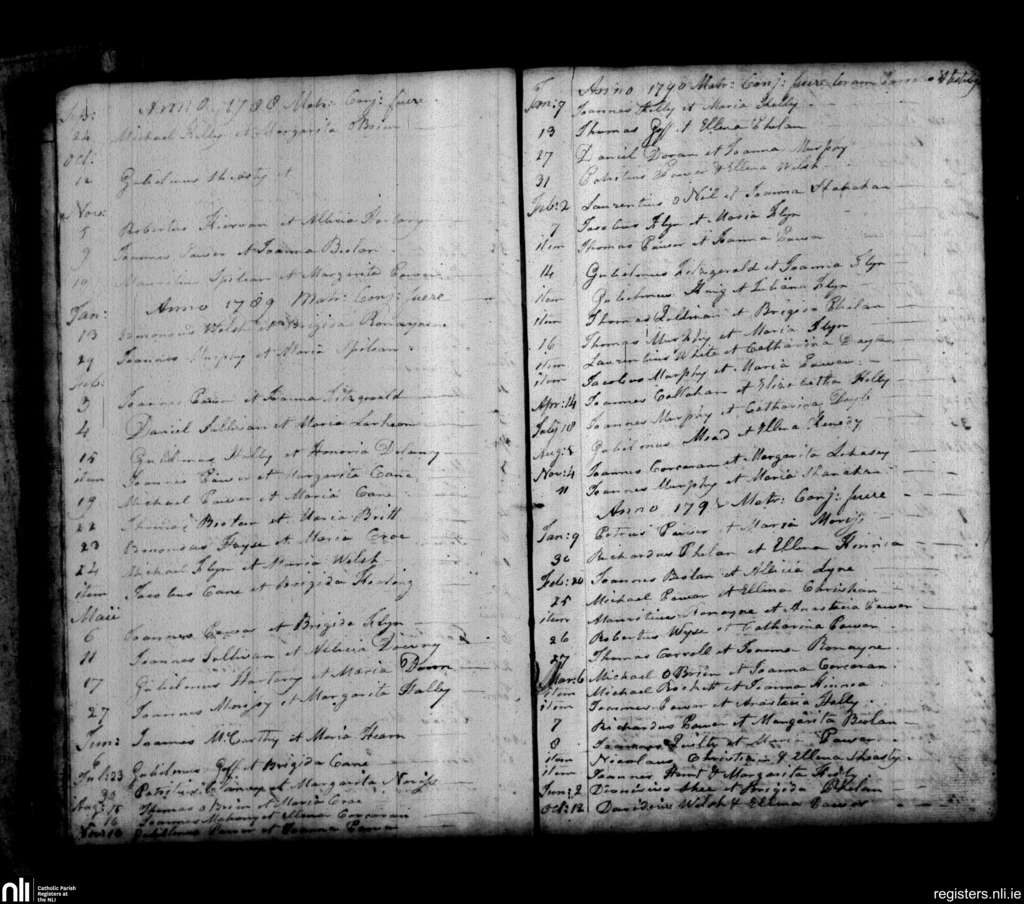 Feb: Anno 1788 Matr: Conj: fuere
24 Michael Kelly et Margarita OBrien
Oct:
12 Gulielmus et
Nov:
5 Robertus Kirwan et Allicia
9 Joannes Power et Joanna Bolan
19 Mauritius Spilean et Margarita Power
Jan: Anno 1789 Matr: Conj: fuere
13 Edmondus Welsh et Brigida Ronayne
29 Joannes Murphy et Maria Spilean
Feb:
3 Joannes Power et Joanna Fitzgerald
4 Daniel Sullivan et Maria
15 Gulielmus Kelly et Honoria Delany
item Joannes Power et Margarita Cane
19 Michael Power et Maria Cane
22 Thomas et Maria Britt
23 Edmondus Hayse et Maria Croe
24 Michael Flyn et Maria Welsh
item Jacobus Cane et Brigida
Maii
6 Joannes Power et Brigida Flyn
11 Joannes Sullivan et Allicia Downy
17 Gulielmus Hartery et Maria Down
27 Joannes et Margarita Hally
Jun: Joannes McCarthy et Maria Hearn
Jul: 23 Gulielmus Goff et Brigida Cane
et Margarita
Aug: 15 Thomas oBrien et Maria Croe
16 Joannes Mahony et Ellena Corcoran
Nov: 10 Gulielmus Power et Joanna Power
Anno 1790 Matr: Conj: fuere Coram
Jan: 7 Joannes Kelly et Maria Kelly
13 Thomas Goff et Ellena Phelan
27 Daniel Doran et Joanna Murphy
31 Power & Ellena Welsh
Feb: 2 Laurentius o Neil et Joanna Shanahan
7 Jacobus Flyn et Maria Flyn
item Thomas Power et Joanna Power
14 Gulielmus Fitzgerald et Joanna Flyn
item Gulielmus King et Juliana Flyn
item Thomas Sullivan et Brigida Phelan
16 Thomas Murphy et Maria Flyn
item Laurentius White et Catharina
item Jacobus Murphy et Maria Power
Apr: 14 Joannes Callahan et Elizabetha Kelly
July 18 Joannes Murphy et Catharina Doyle
Aug: 8 Gulielmus Mead et Ellena
Nov: 4 Joannes Corcoran et Margarita
11 Joannes Murphy et Maria Shanahan
Anno 1791 Matr: Conj: fuere
Jan: 9 Petrus Power et Maria
30 Richardus Phelan et Ellena Kinnica
Feb: 20 Joannes Bolan et Allicia Lyne
25 Michael Power et Ellena Christian
item Mauritius Ronayne et Anastacia Power
26 Robertus Wyse et Catharina Power
27 Thomas Carroll et Joanna Ronayne
Mar: 6 Michael OBrien et Joanna Corcoran
item Michael Rockett et Joanna Kinnca
item Joannes Power et Anastacia Hally
7 Richardus Power et Margarita Bolan
8 Joannes Quilty et Maria Power
item Nicolaus Christian & Ellena Sheasty
item Joannes Hunt & Margarita Hally
Jun: 2 Dionisius Shee et Brigida Phelan
Oct: 12 Davidius Welsh & Ellena Power
nli
Catholic Parish
Registers at
the NLI
registers.nli.ie